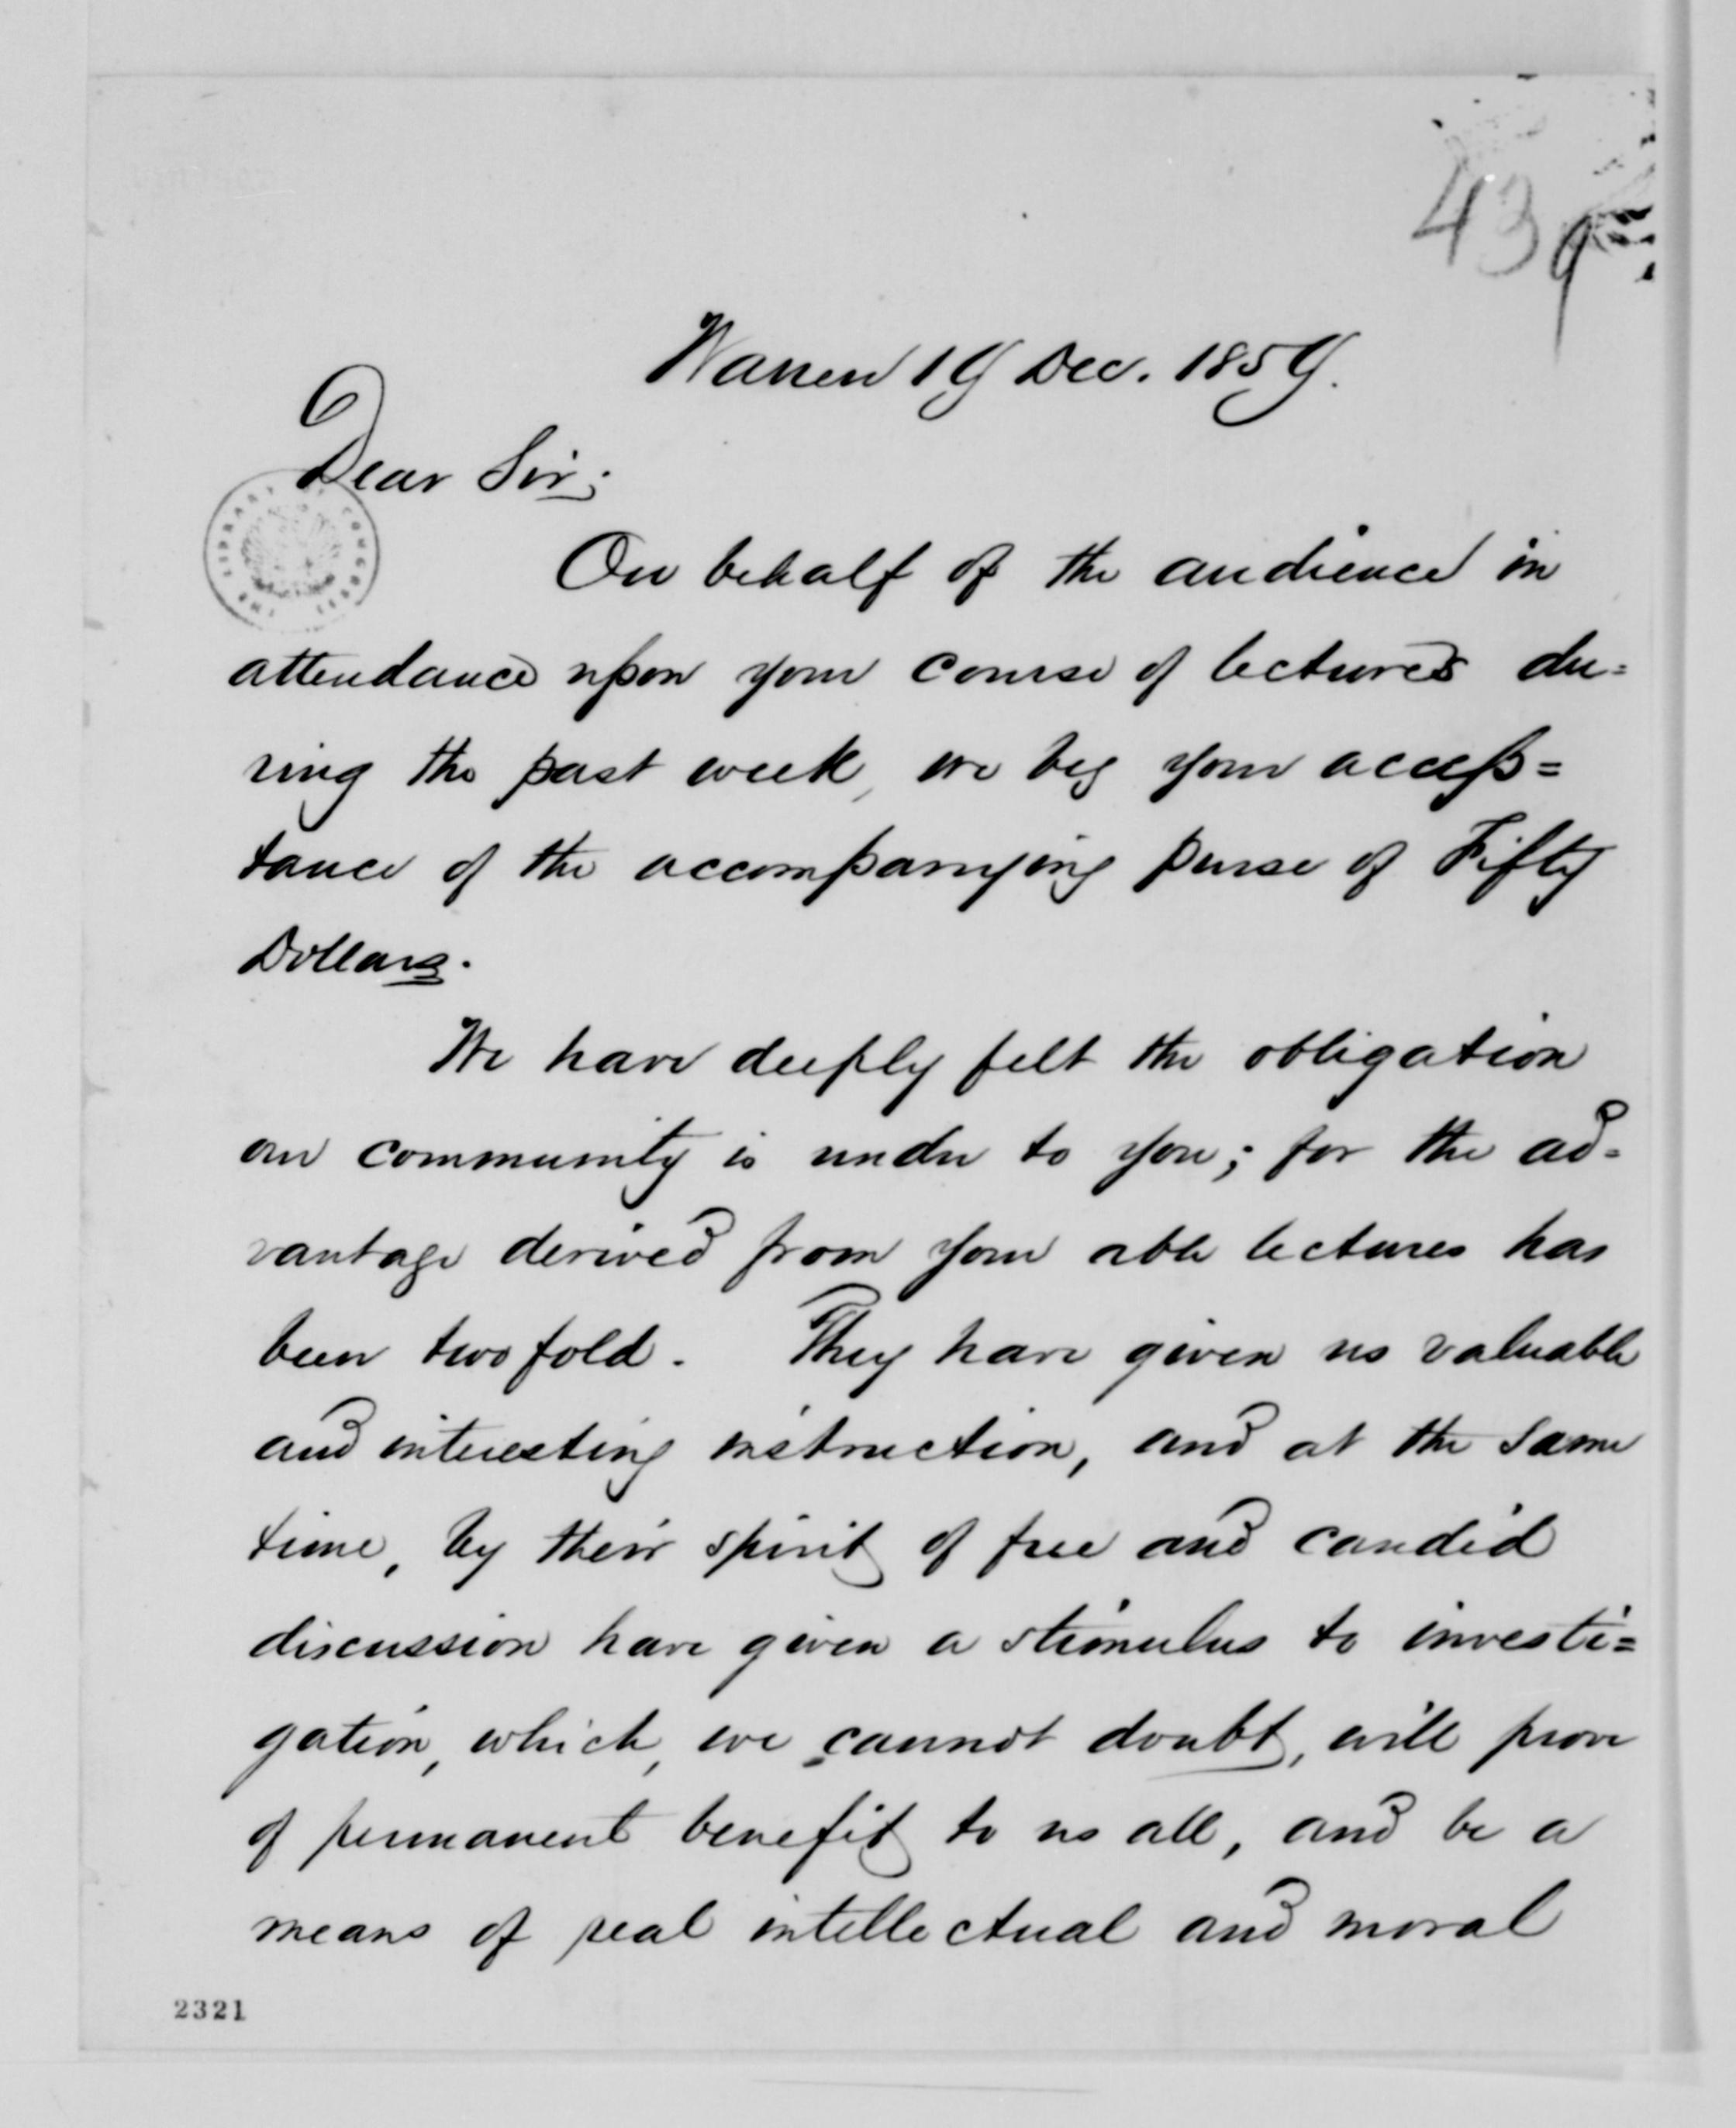 439
Warren 19 Dec. 1859.
Dear Sir;
THE LIBRARY OF CONGRESS
On behalf of the audience in
attendance upon your course of lectures du=
ring the past week, we beg your accep=
tance of the accompanying purse of Fifty
Dollars.
We have deeply felt the obligation
our community is under to you; for the ad=
vantage derived from your able lectures has
been two fold. They have given us valuable
and interesting instruction, and at the same
time, by their spirit of free and candid
discussion have given a stimulus to investi=
gation, which, we cannot doubt, will prove
of permanent benefit to us all, and be a
means of real intellectual and moral
2321